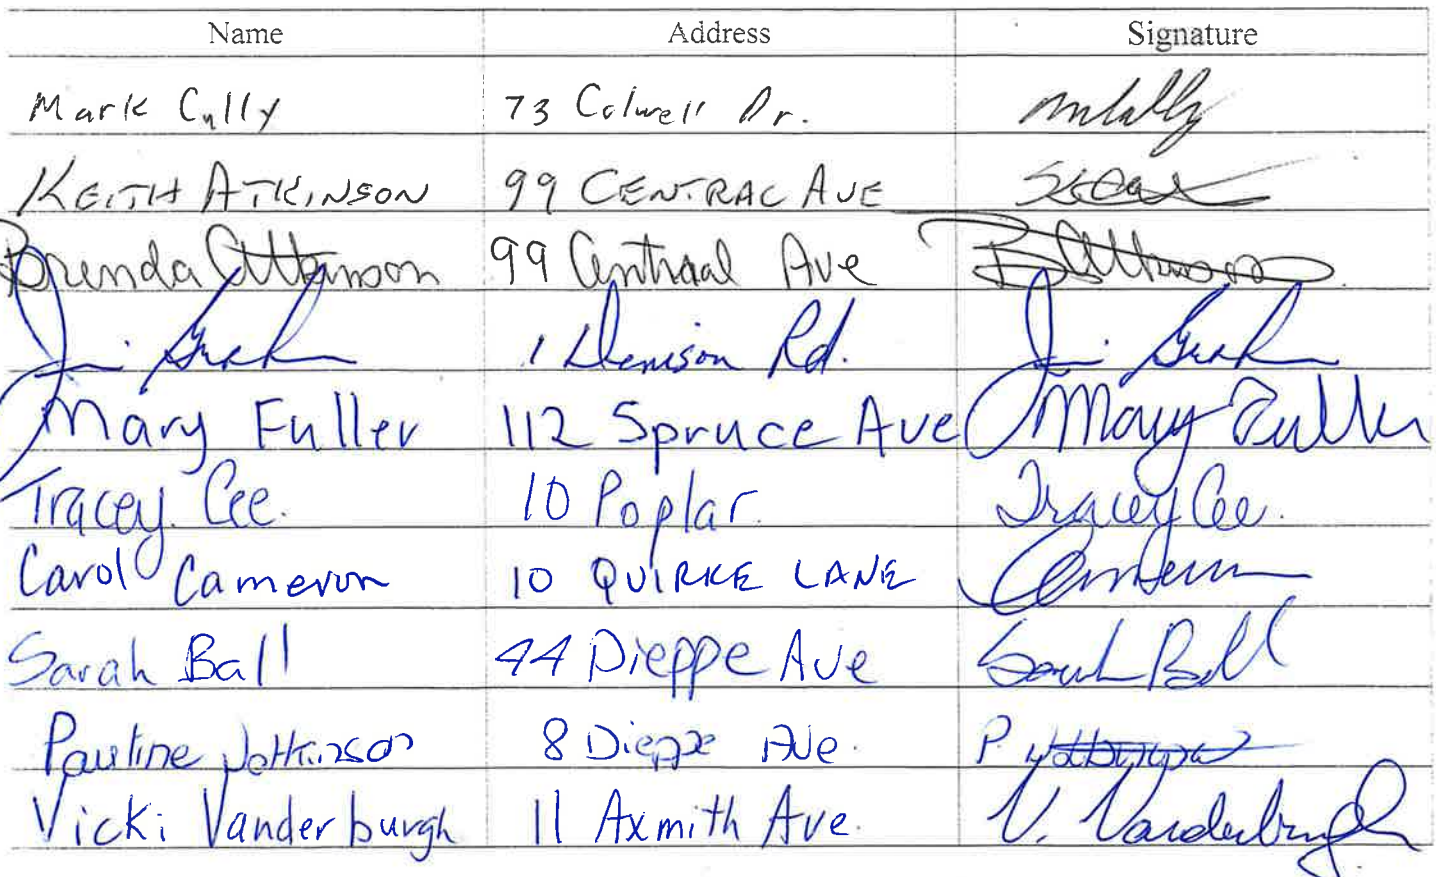 Name Address Signature
Mark Cully 73 Colwell Dr.
KEITH ATKINSON 99 CENTRAL AVE
Brenda Atkinson 99 Centraal Ave B Atkinson
Jim Graham 1 Denison Rd. Jim Graham
Mary Fuller 112 Spruce Ave Mary Fuller
Tracey Cee. 10 Poplar. Tracey Cee.
Carol Cameron 10 QUIRKE LANE
Sarah Ball 44 Dieppe Ave Sarah Ball
Pauline 8 Dieppe Ave. P.
Vicki Vanderburgh 11 Axmith Ave. V. Vanderburgh